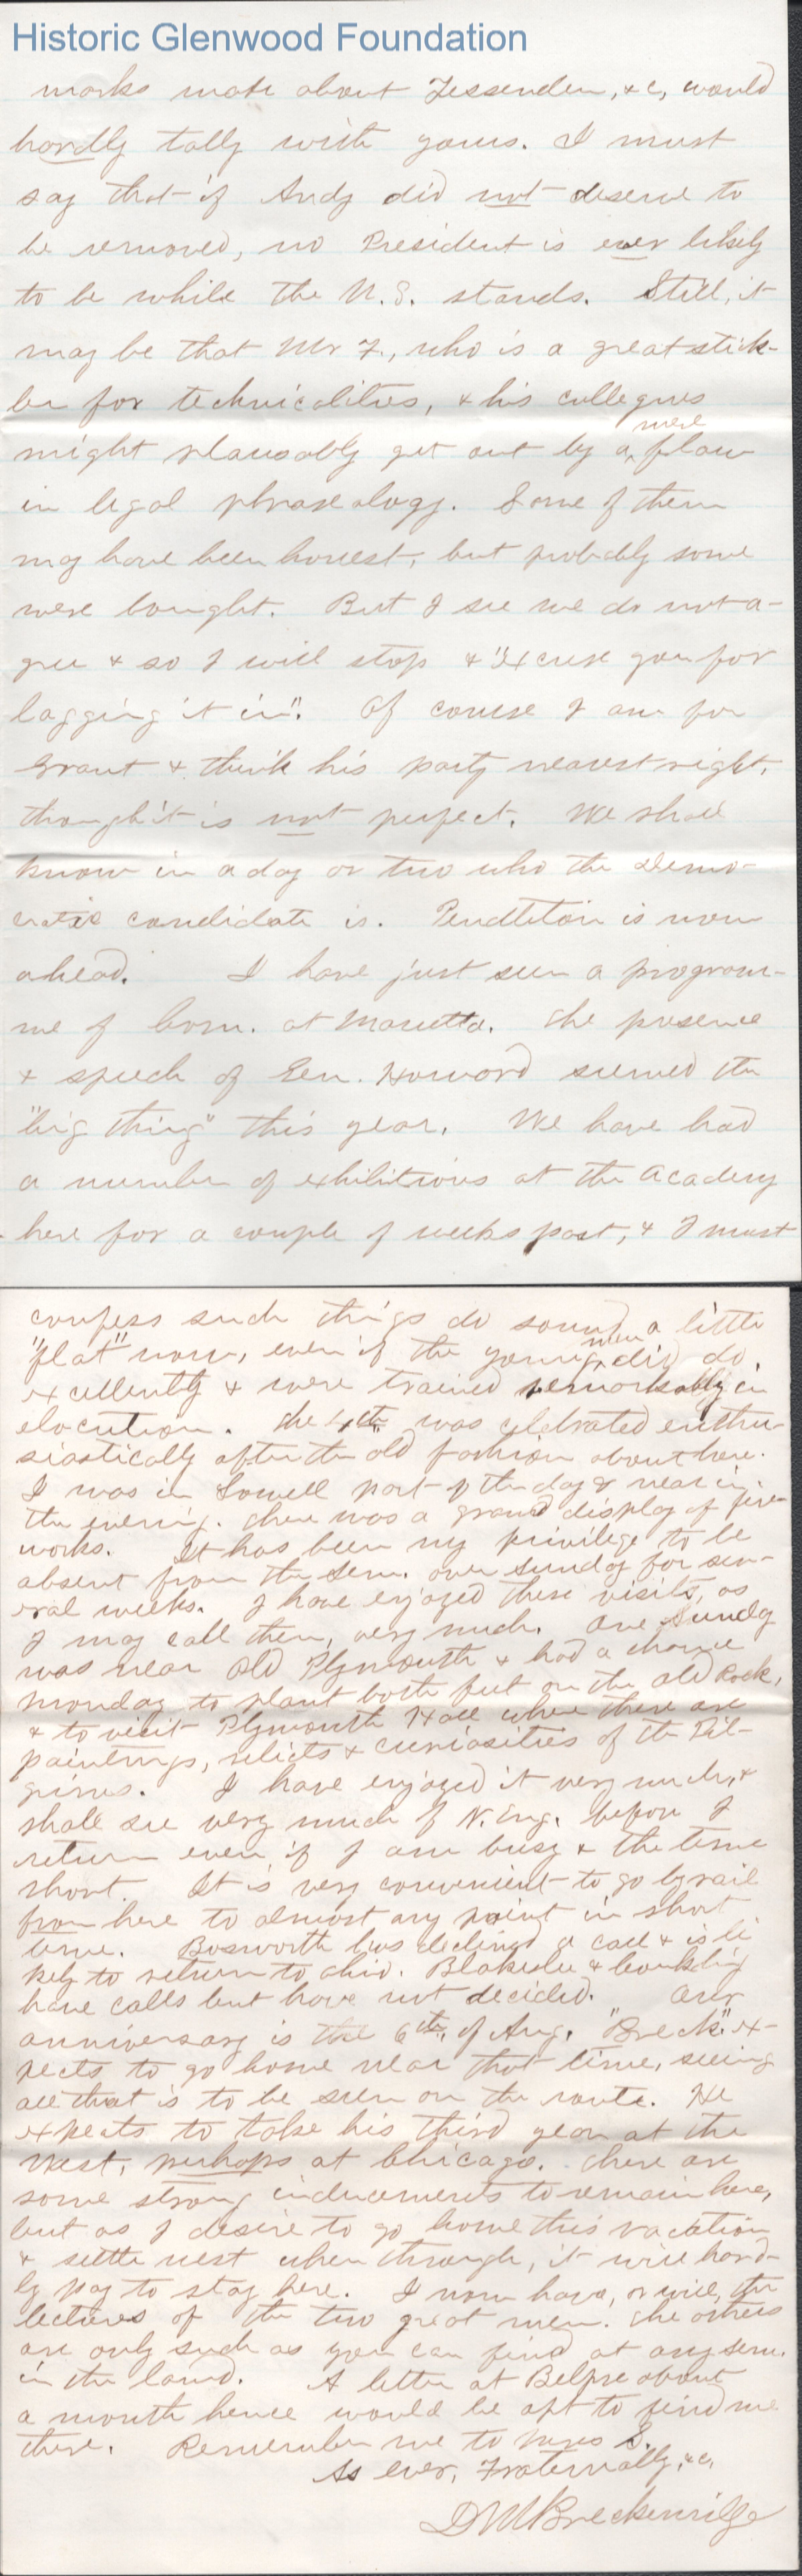 Historic Glenwood Foundation
marks made about Fessenden, &c, would
hardly tally with yours. I must
say that if Andy did not deserve to
be removed, no President is ever likely
to be while the U.S. stands. Still, it
may be that Mr F., who is a great stick-
ler for technicalities, & his collegues
might plausably get out by a mere flaw
in legal phrasealogy. Some of them
may have been honest, but probably some
were bought. But I see we do not a-
gree & so I will stop & "Excuse you for
lagging it in". Of course I am for
Grant & think his party nearest right,
though it is not perfect. We shall
know in a day or two who the Demo-
cratic candidate is. Pendleton is now
ahead. I have just seen a program-
me of Com. at Marietta. The presence
& speech of Gen. Howard seemed the
"big thing" this year. We have had
a number of exhibitions at the Academy
here for a couple of weeks past, & I must
confess such things do sound a little
"flat" now, even if the young men did do
excellently & were trained remarkably in
elocution. The 4th was celebrated enthu-
siastically after the old fashion about here.
I was in Lowell part of the day & near in
the evening. There was a grand display of fire-
works. It has been my privilege to be
absent from the Sem. over Sunday for sev-
eral weeks. I have enjoyed these visits, as
I may call them, very much. One Sunday
was near Old Plymouth & had a chance
Monday to plant both feet on the old Rock,
& to visit Plymouth Hall where there are
paintings, relicts & curiosities of the Pil-
grims. I have enjoyed it very much, &
shall see very much of N. Eng. before I
return even if I am busy & the time
short. It is very convenient to go by rail
from here to almost any point in short
time. Bosworth has declined a call & is li-
kely to return to Ohio. Blakeslee & Conkling
have calls but have not decided. Our
anniversary is the 6th of Aug. "Breck" ex-
pects to go home near that time, seeing
all that is to be seen on the route. He
expects to take his third year at the
West, perhaps at Chicago. There are
some strong inducements to remain here,
but as I desire to go home this vacation
& settle west when through, it will hard-
ly pay to stay here. I now have, or will, the
lectures of the two great men. The others
are only such as you can find at any sem.
in the land. A letter at Belpre about
a month hence would be apt to find me
there. Remember me to S.
As ever, Fraternally, &c,
D M Breckenridge